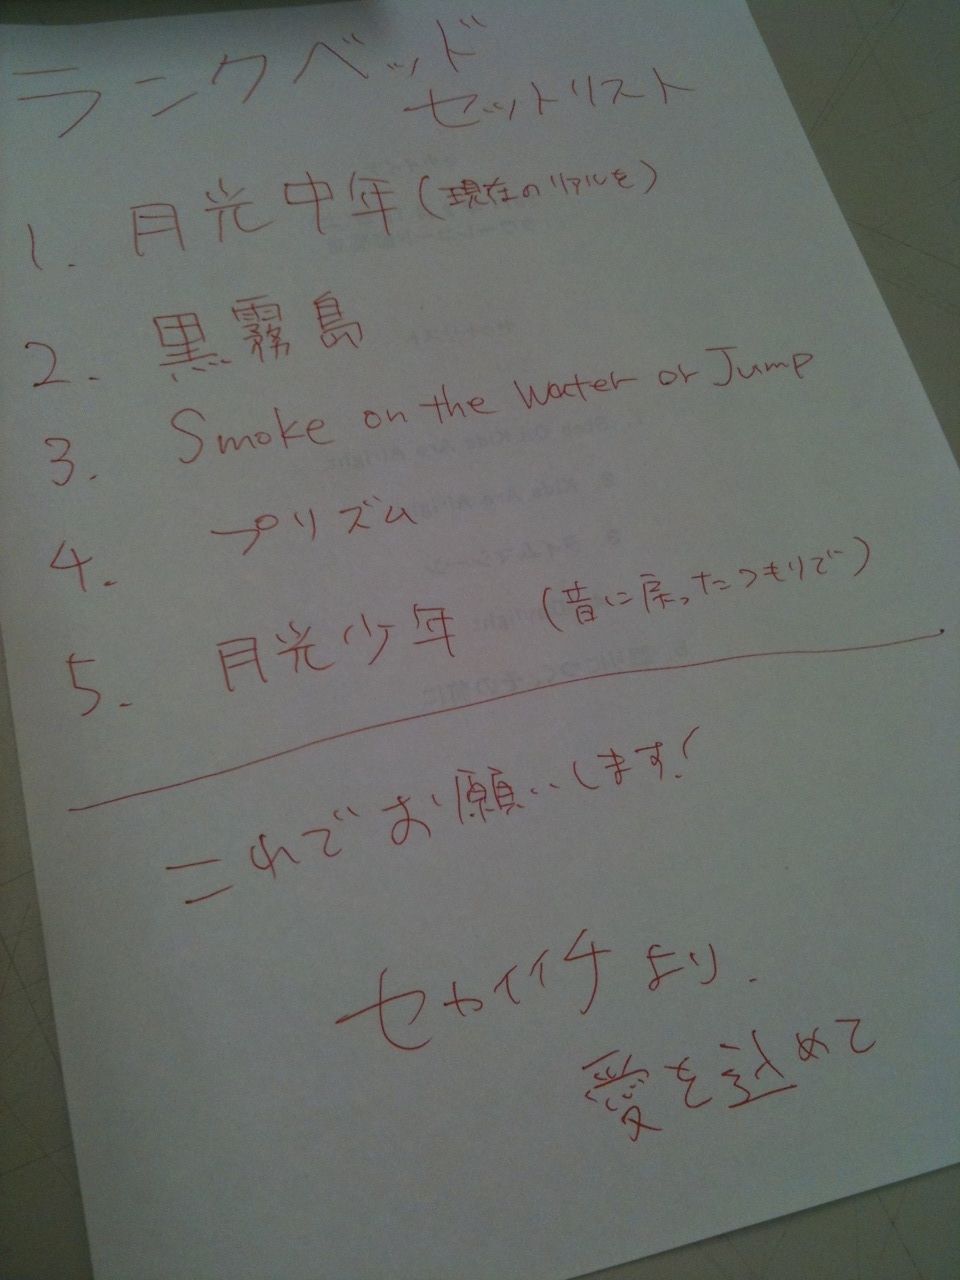 ランクベッド
セットリスト
1. 月光中年(現在のリアルを)
2. 黒霧島
3. Smoke on the Water or Jump
4. プリズム
5. 月光少年 (昔に戻ったつもりで)
これでお願いします!
セカイイチより.
愛を込めて